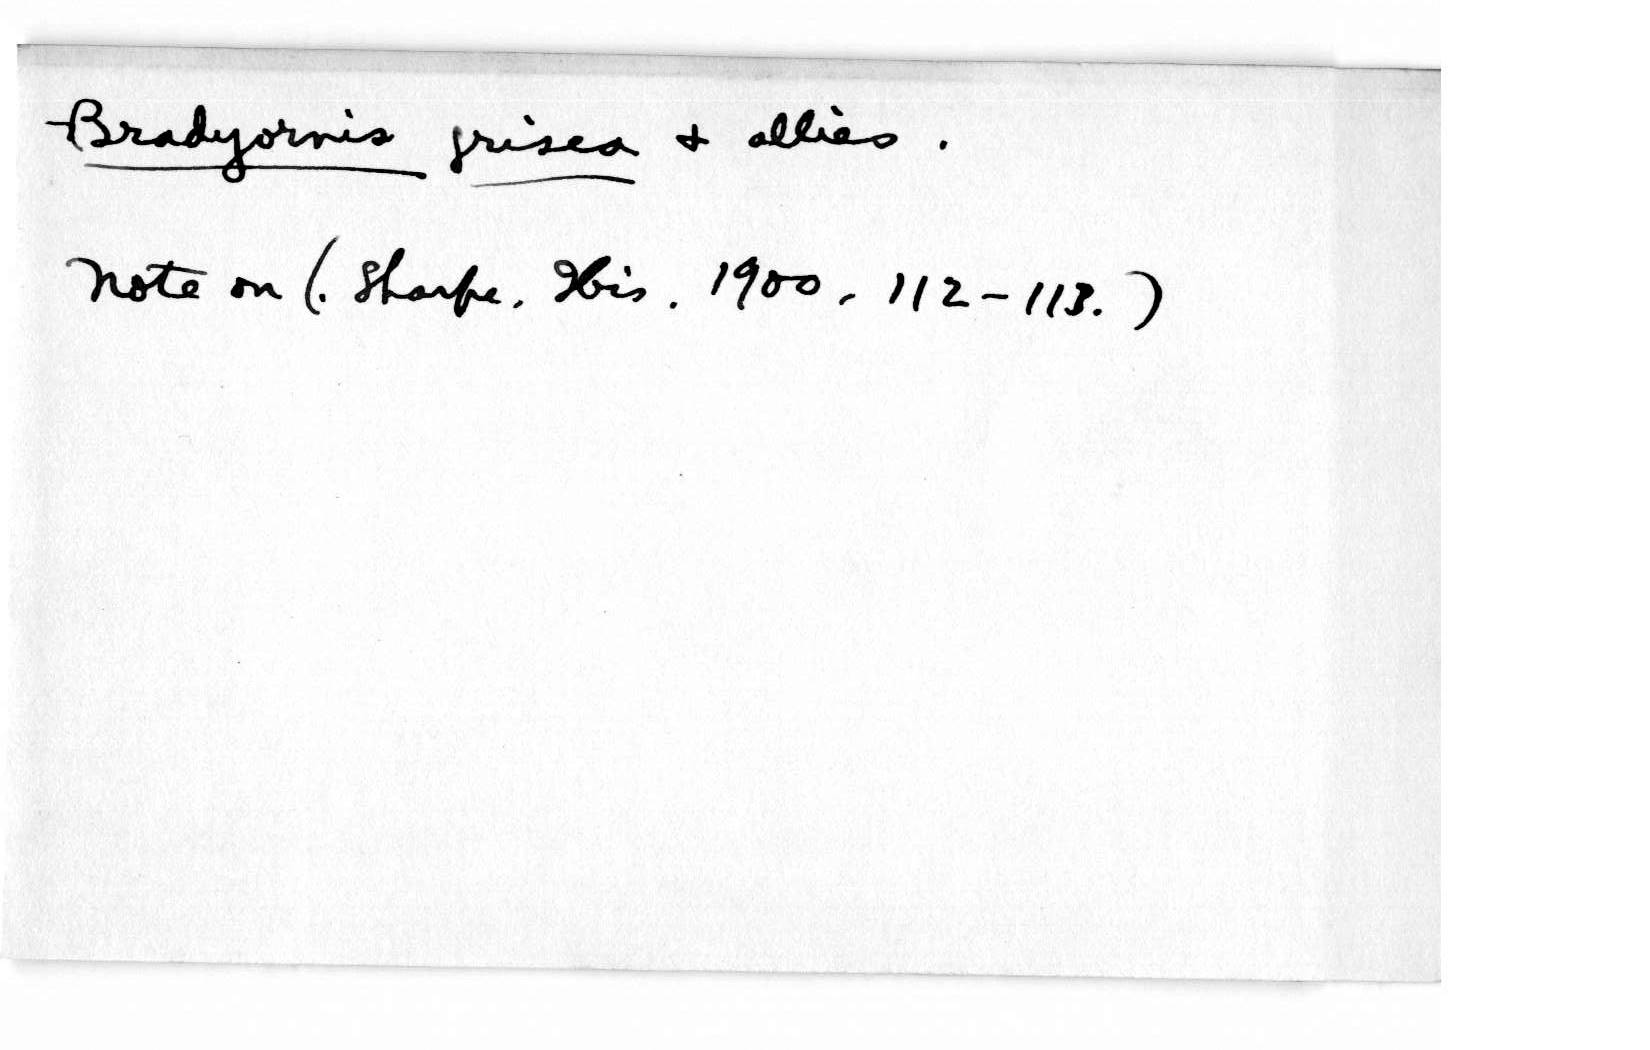 Bradyornis grisea & allies.
Note on (. Sharpe. Ibis. 1900. 112-113.)